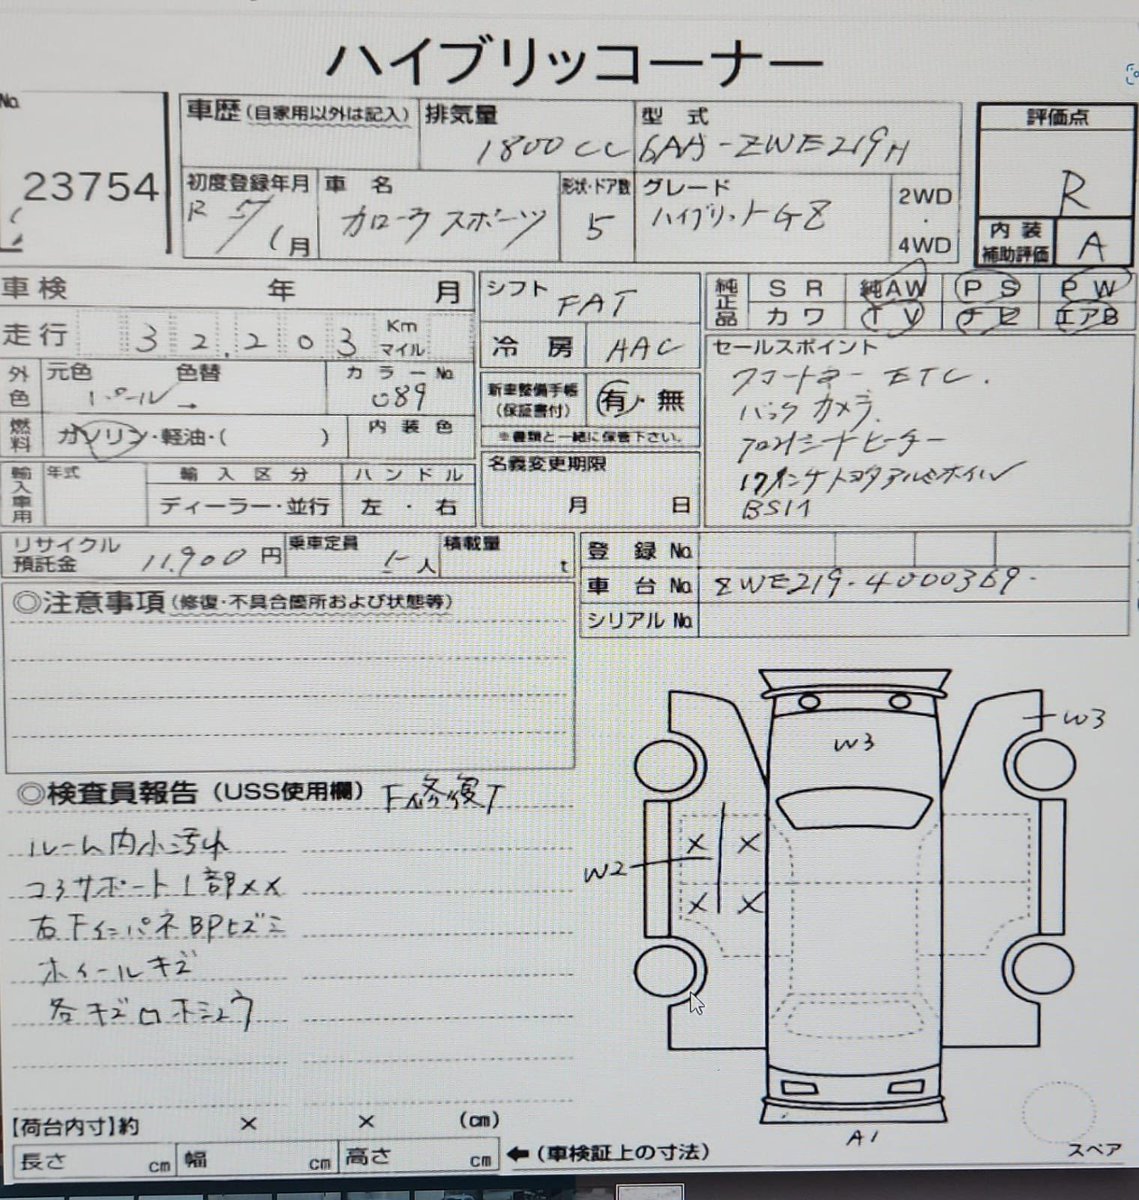 ハイブリッコーナー
No.
23754
車歴(自家用以外は記入)
排気量
1800cc
型式
6AA-ZWE219H
評価点
R
初度登録年月
R 7/1月
車名
カローラスポーツ
形状・ドア数
5
グレード
ハイブリットGZ
2WD
・
4WD
内装
補助評価
A
車検 年 月
シフト
FAT
純正品
SR
純AW
PS
PW
カワ
TV
ナビ
エアB
走行 32,203 Km
マイル
冷房
AAC
セールスポイント
フロートネー ETC.
バックカメラ.
フロントシートヒーター
17インチトヨタアルミホイル
BSM
外色
元色 色替
パール→
カラーNo.
089
新車整備手帳
(保証書付)
有・無
※書類と一緒に保管下さい。
燃料
ガソリン・軽油・( )
内装色
輸入車用
年式
輸入区分
ディーラー・並行
ハンドル
左・右
名義変更期限
月 日
リサイクル
預託金
11,900円
乗車定員
5人
積載量
t
登録No.
車台No. ZWE219-4000369
シリアルNo.
◎注意事項(修復・不具合箇所および状態等)
◎検査員報告(USS使用欄) F修復T
ルーム内小汚れ
コアサポート1部××
右FインパネBPヒズミ
ホイールキズ
各キズロホシュウ
W3
W3
W2
×
×
×
×
A1
スペア
【荷台内寸】約 × × (cm)
長さ cm
幅 cm
高さ cm
←(車検証上の寸法)